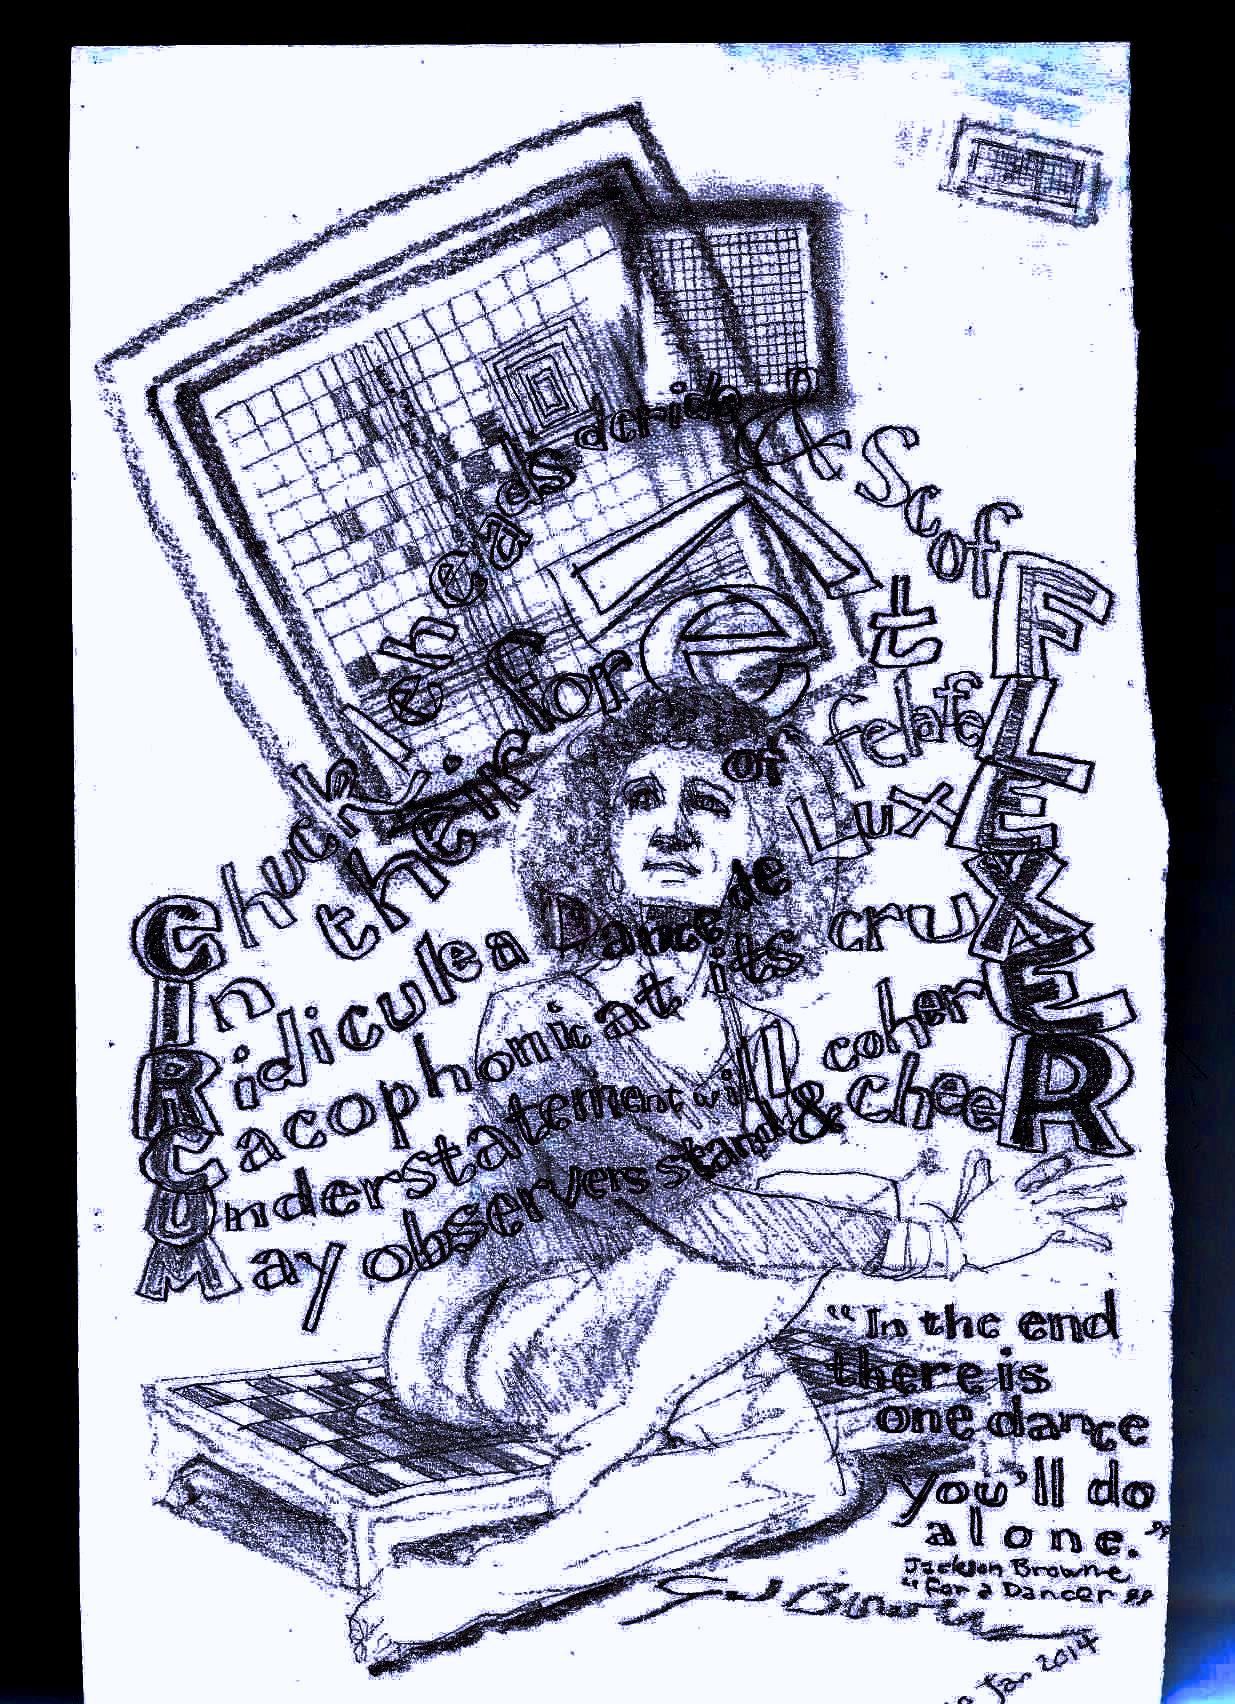 Chuckleheads deride & ScofF
In their forêt of felafeL
Ridicule a Dance de LuxE
Cacophonic at its cruX
Understatement will coherE
May observers stand & cheeR
“In the end
there is
one dance
you'll do
alone.”
Jackson Browne
“For a Dancer”
Jan 2014